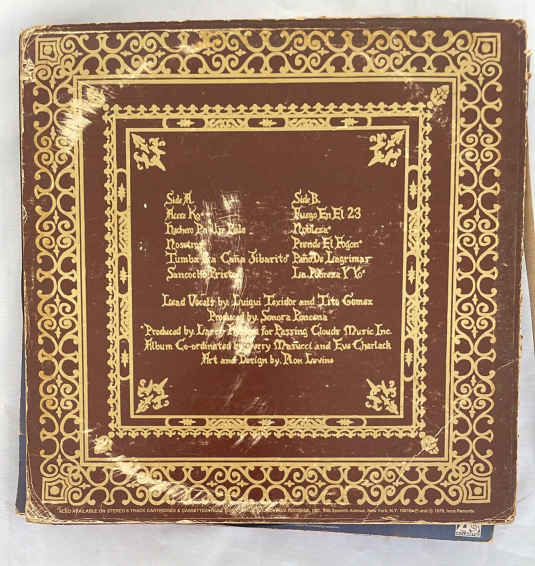 Side A.
Acere Ko
Hachero Pa Un Palo
Nosotros
Tumba La Caña Jibarito
Sancocho Prieto
Side B.
Fuego En El 23
Nobleza
Prende El Fogon
Paño De Lagrimas
La Pobreza Y Yo
Lead Vocals by. Luigui Texidor and Tito Gomez
Produced by. Sonora Poncena
Produced by. Larry for Passing Clouds Music Inc.
Album Co-ordinated by. Jerry Masucci and Eve Charlack
Art and Design by. Ron Levine
ALSO AVAILABLE ON STEREO 8 TRACK CARTRIDGES & CASSETTES RECORDS, INC. Seventh Avenue, New York, N.Y. 10019 ℗ and © 1979, Inca Records